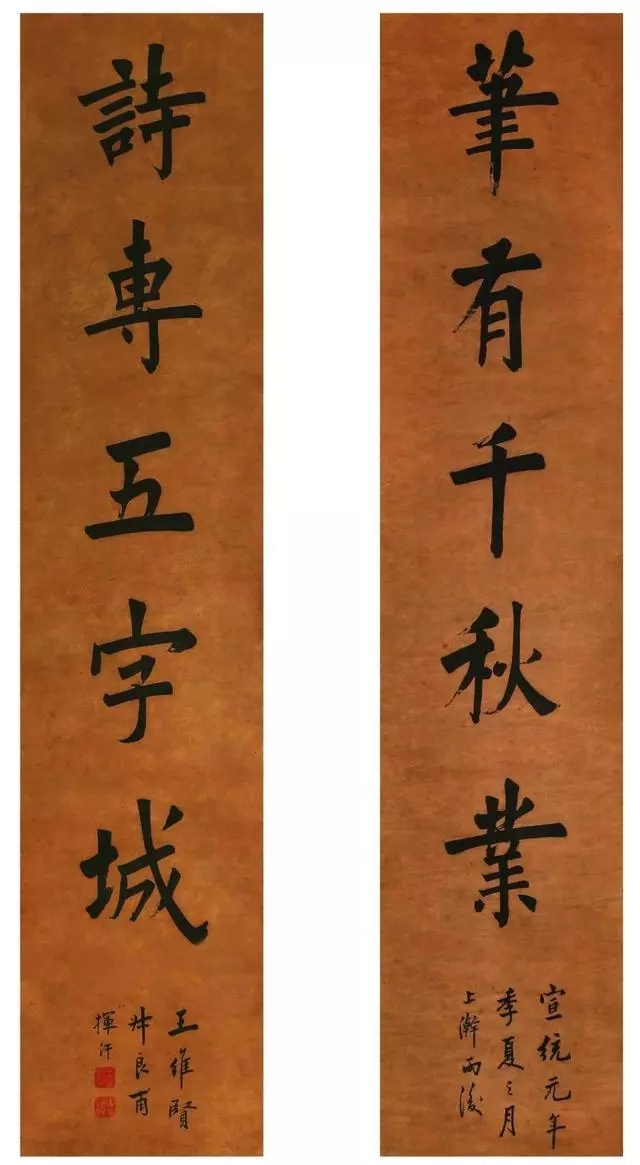 筆有千秋業
宣統元年
季夏之月
上澣雨後
詩專五字城
王維賢
升良甫
揮汗